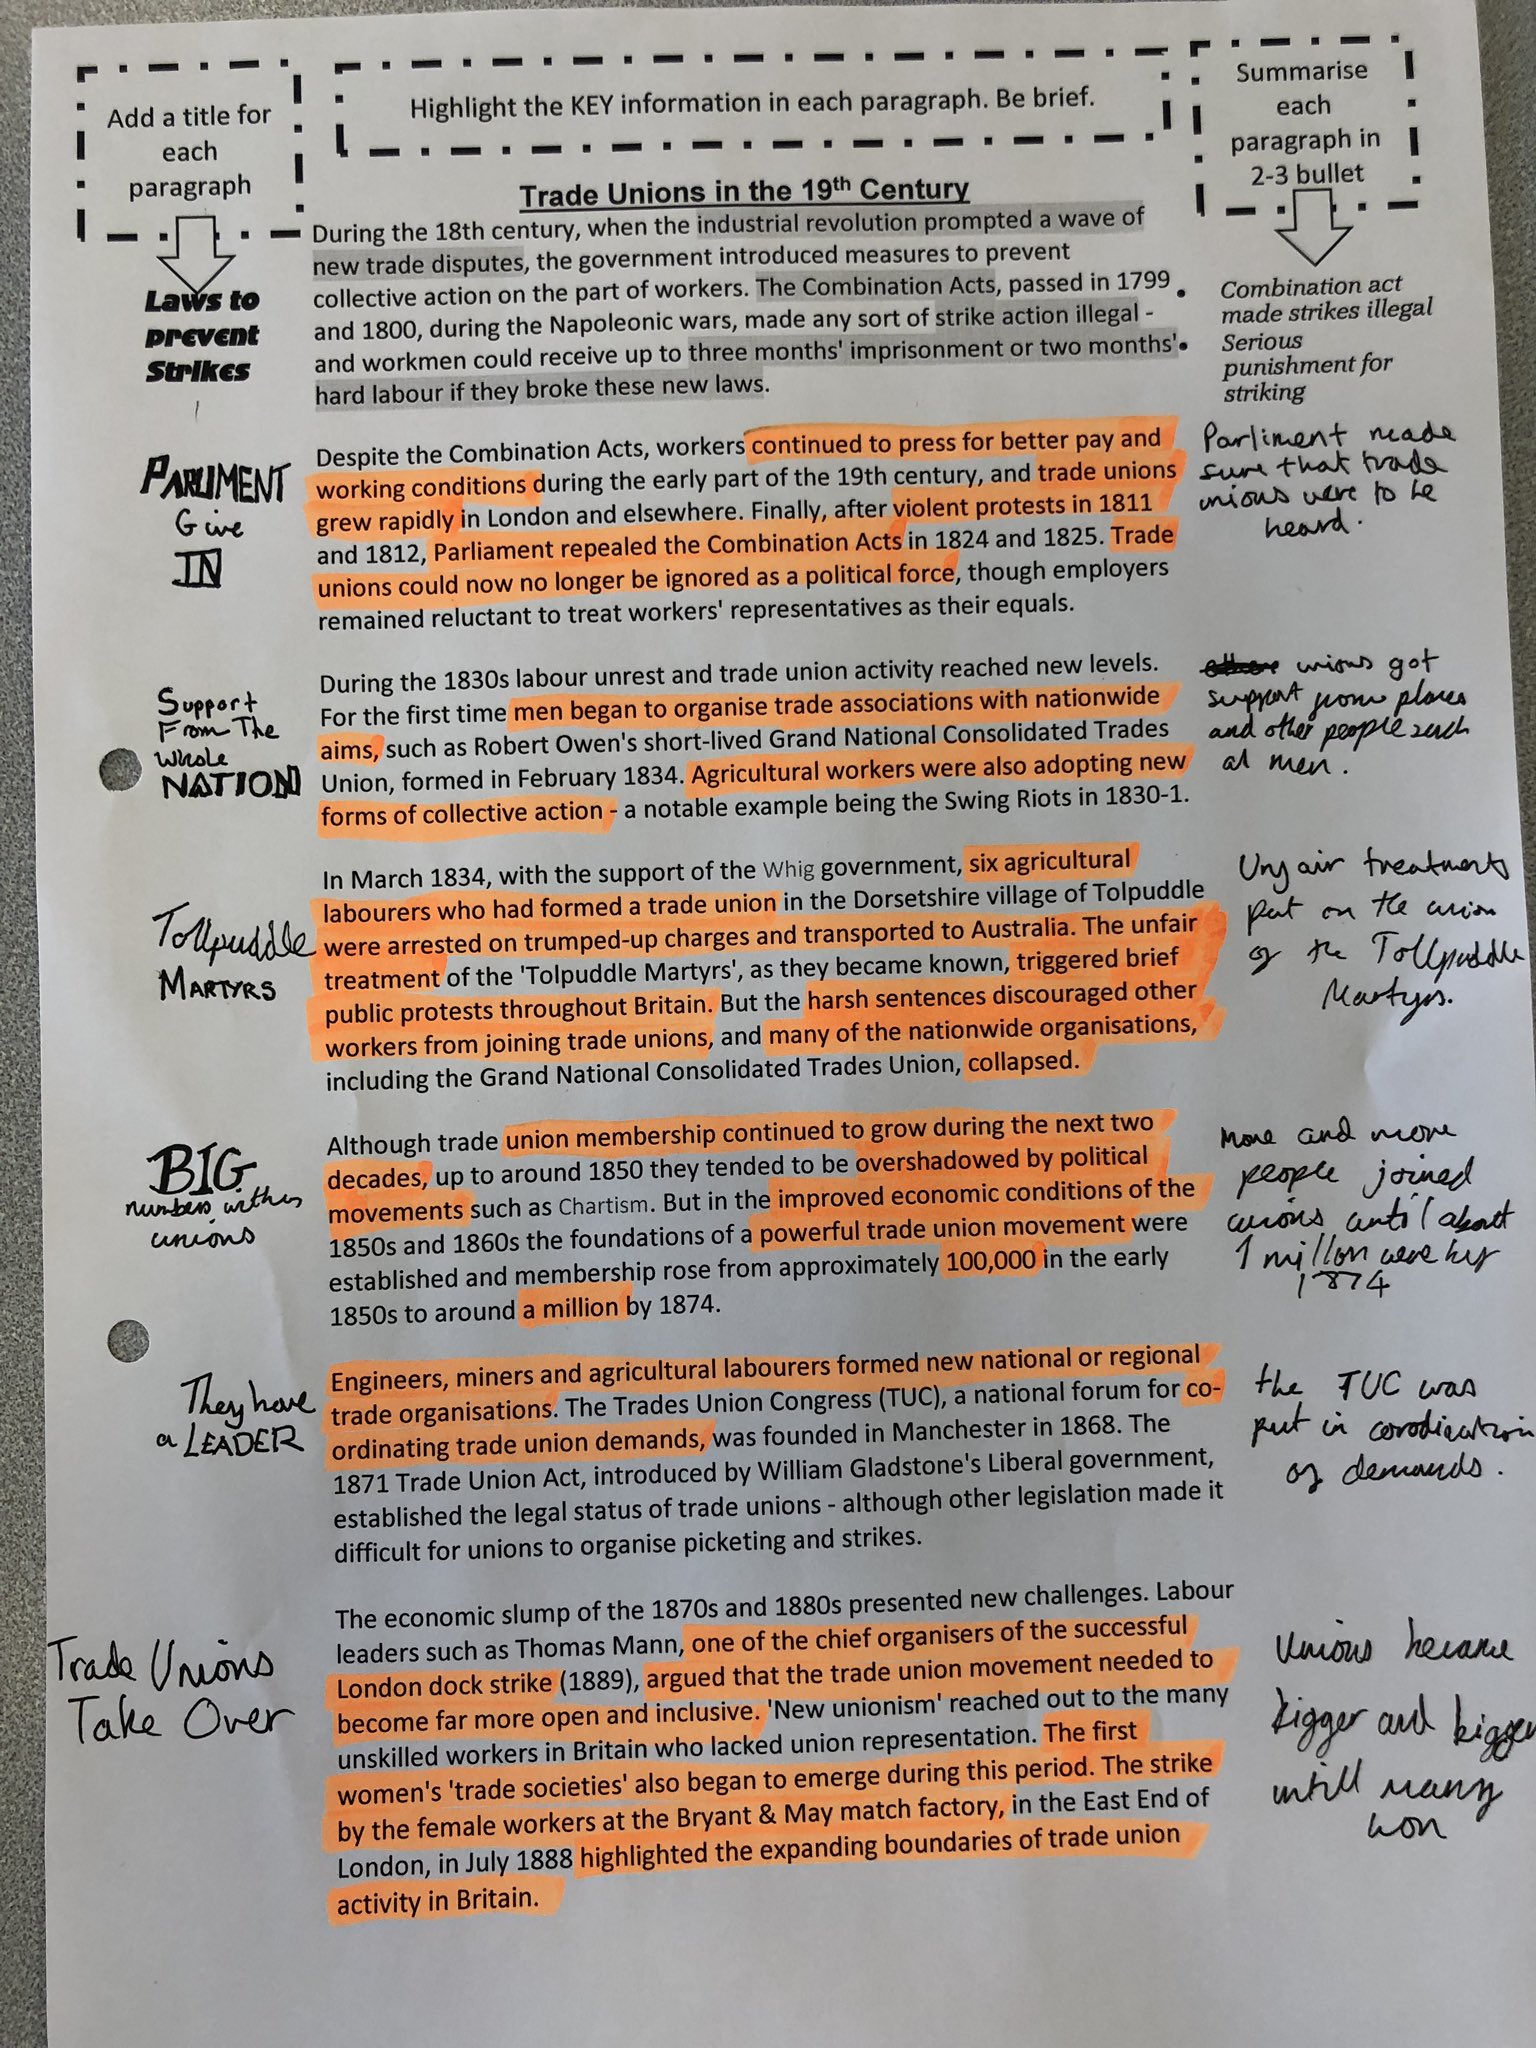 Add a title for
each
paragraph
Highlight the KEY information in each paragraph. Be brief.
Summarise
each
paragraph in
2-3 bullet
Trade Unions in the 19th Century
Laws to
prevent
Strikes
During the 18th century, when the industrial revolution prompted a wave of
new trade disputes, the government introduced measures to prevent
collective action on the part of workers. The Combination Acts, passed in 1799
and 1800, during the Napoleonic wars, made any sort of strike action illegal -
and workmen could receive up to three months' imprisonment or two months'
hard labour if they broke these new laws.
• Combination act
made strikes illegal
• Serious
punishment for
striking
PARLIMENT
Give
IN
Despite the Combination Acts, workers continued to press for better pay and
working conditions during the early part of the 19th century, and trade unions
grew rapidly in London and elsewhere. Finally, after violent protests in 1811
and 1812, Parliament repealed the Combination Acts in 1824 and 1825. Trade
unions could now no longer be ignored as a political force, though employers
remained reluctant to treat workers' representatives as their equals.
Parliment made
sure that trade
unions were to be
heard.
Support
From The
Whole
NATION
During the 1830s labour unrest and trade union activity reached new levels.
For the first time men began to organise trade associations with nationwide
aims, such as Robert Owen's short-lived Grand National Consolidated Trades
Union, formed in February 1834. Agricultural workers were also adopting new
forms of collective action - a notable example being the Swing Riots in 1830-1.
unions got
support from places
and other people such
as men.
Tollpuddle
MARTYRS
In March 1834, with the support of the Whig government, six agricultural
labourers who had formed a trade union in the Dorsetshire village of Tolpuddle
were arrested on trumped-up charges and transported to Australia. The unfair
treatment of the 'Tolpuddle Martyrs', as they became known, triggered brief
public protests throughout Britain. But the harsh sentences discouraged other
workers from joining trade unions, and many of the nationwide organisations,
including the Grand National Consolidated Trades Union, collapsed.
Unfair treatment
put on the union
of the Tollpuddle
Martyrs.
BIG
numbers within
unions
Although trade union membership continued to grow during the next two
decades, up to around 1850 they tended to be overshadowed by political
movements such as Chartism. But in the improved economic conditions of the
1850s and 1860s the foundations of a powerful trade union movement were
established and membership rose from approximately 100,000 in the early
1850s to around a million by 1874.
More and more
people joined
unions until about
1 millon were by
1874
They have
a LEADER
Engineers, miners and agricultural labourers formed new national or regional
trade organisations. The Trades Union Congress (TUC), a national forum for co-
ordinating trade union demands, was founded in Manchester in 1868. The
1871 Trade Union Act, introduced by William Gladstone's Liberal government,
established the legal status of trade unions - although other legislation made it
difficult for unions to organise picketing and strikes.
the TUC was
put in
of demands.
Trade Unions
Take Over
The economic slump of the 1870s and 1880s presented new challenges. Labour
leaders such as Thomas Mann, one of the chief organisers of the successful
London dock strike (1889), argued that the trade union movement needed to
become far more open and inclusive. 'New unionism' reached out to the many
unskilled workers in Britain who lacked union representation. The first
women's 'trade societies' also began to emerge during this period. The strike
by the female workers at the Bryant & May match factory, in the East End of
London, in July 1888 highlighted the expanding boundaries of trade union
activity in Britain.
Unions became
bigger and bigger
untill many
won